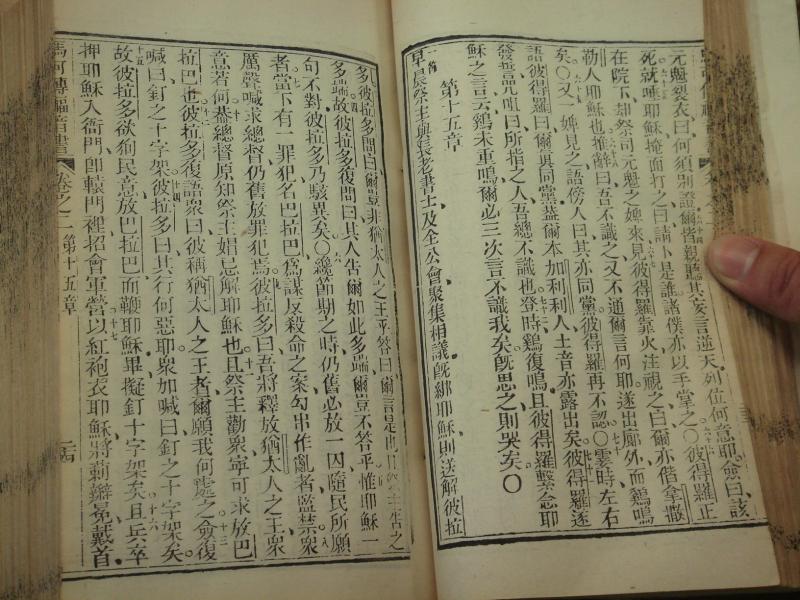 元魁裂衣曰何須別證爾皆親聽其妄言逆天列位何意耶僉曰該
死就唾耶穌掩面打之曰請卜是誰諸僕亦以手掌之〇彼得羅正
在院下却祭司元魁之婢來見彼得羅靠火注視之曰爾亦偕拿撒
勒人耶穌也推辭曰吾不識之又不通爾言何耶遂出廊外而鷄鳴
矣〇又一婢見之語傍人曰其亦同黨彼得羅再不認〇霎時左右
語彼得羅曰爾真同黨蓋爾本加利利人土音亦露出矣彼得羅遂
發誓詛咒曰所指之人吾總不識也登時鷄復鳴且彼得羅繫念耶
穌之言云鷄未重鳴爾必三次言不識我矣旣思之則哭矣〇
第十五章
早晨祭主與長老書士及全公會聚集相議旣綁耶穌則送解彼拉
多彼拉多問曰爾豈非猶太人之王乎答曰爾言是也
多端故彼拉多復問曰其人告爾如此多端爾豈不答乎惟耶穌一
句不對彼拉多乃駭異矣〇纔節期之時仍舊必放一囚隨民所願
者當下有一罪犯名巴拉巴爲謀反殺命之案勾串作亂者監禁衆
厲聲喊求總督仍舊放罪犯焉彼拉多曰吾將釋放猶太人之王衆
意若何蓋總督原知祭主娼忌解耶穌也且祭主勸衆寧可求放巴
拉巴也彼拉多復語衆曰彼稱猶太人之王者爾願我何處之僉復
喊曰釘之十字架彼拉多曰其行何惡耶衆加喊曰釘之十字架矣
故彼拉多欲徇民意放巴拉巴而鞭耶穌畢擬釘十字架矣且兵卒
押耶穌入衙門卽轅門裡招會軍營以紅袍衣耶穌將莿辮冕戴首
馬可傳福音書 卷之二第十五章